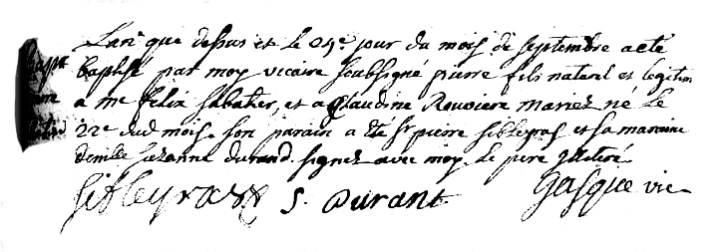 Lan que dessus et le 24e jour du mois de septembre a eté
baptisé par moy vicaire soubsigné pierre fils naturel et legitim
a me felix sabatier, et a Claudine Rouviere mariez né le
22e dud mois. son parain a eté sr pierre sibleyras et sa maraine
demlle suzanne durand. signez avec moy. le pere
Sibleyras S. Durant. Gasque vic